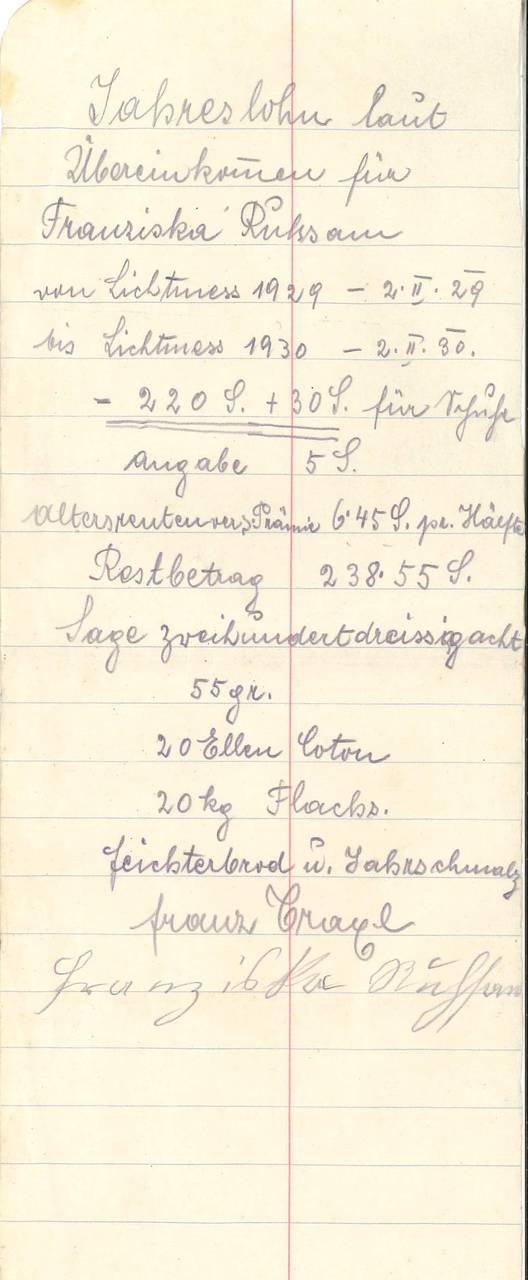 Jahreslohn laut
Übereinkom̄en für
Franziska Ruhsam
von Lichtmess 1929 – 2.II.29
bis Lichtmess 1930 – 2.II.30.
– 220 S. + 30 S. für Schuhe
angabe 5 S.
Altersrentenvers. Prämie 6·45 S. pr. Hälfte
Restbetrag 238·55 S.
Sage zweihundertdreissigacht
55 gr.
20 Ellen Coton
20 kg Flachs.
Feichterbrod u. Jahrschmalz
Franz
Franziska Ruhsam